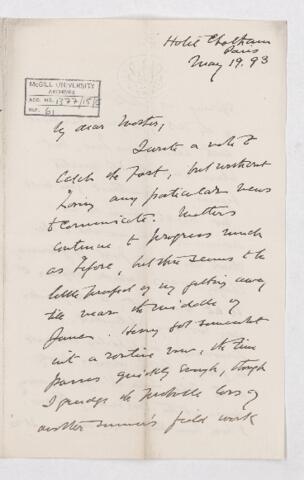 Hotel Chatham
Paris
May 19. 93
McGILL UNIVERSITY
ARCHIVES
ACC. NO. 1377/15/
REF. 61
My dear
I write a note to
catch the post, but without
having any particular news
to communicate. Matters
continue to progress much
as before, but there seems to be
little prospect of my getting away
till near the middle of
June. Having got somewhat
into a routine now, the time
passes quickly enough, though
I grudge the probable loss of
another summer's field work